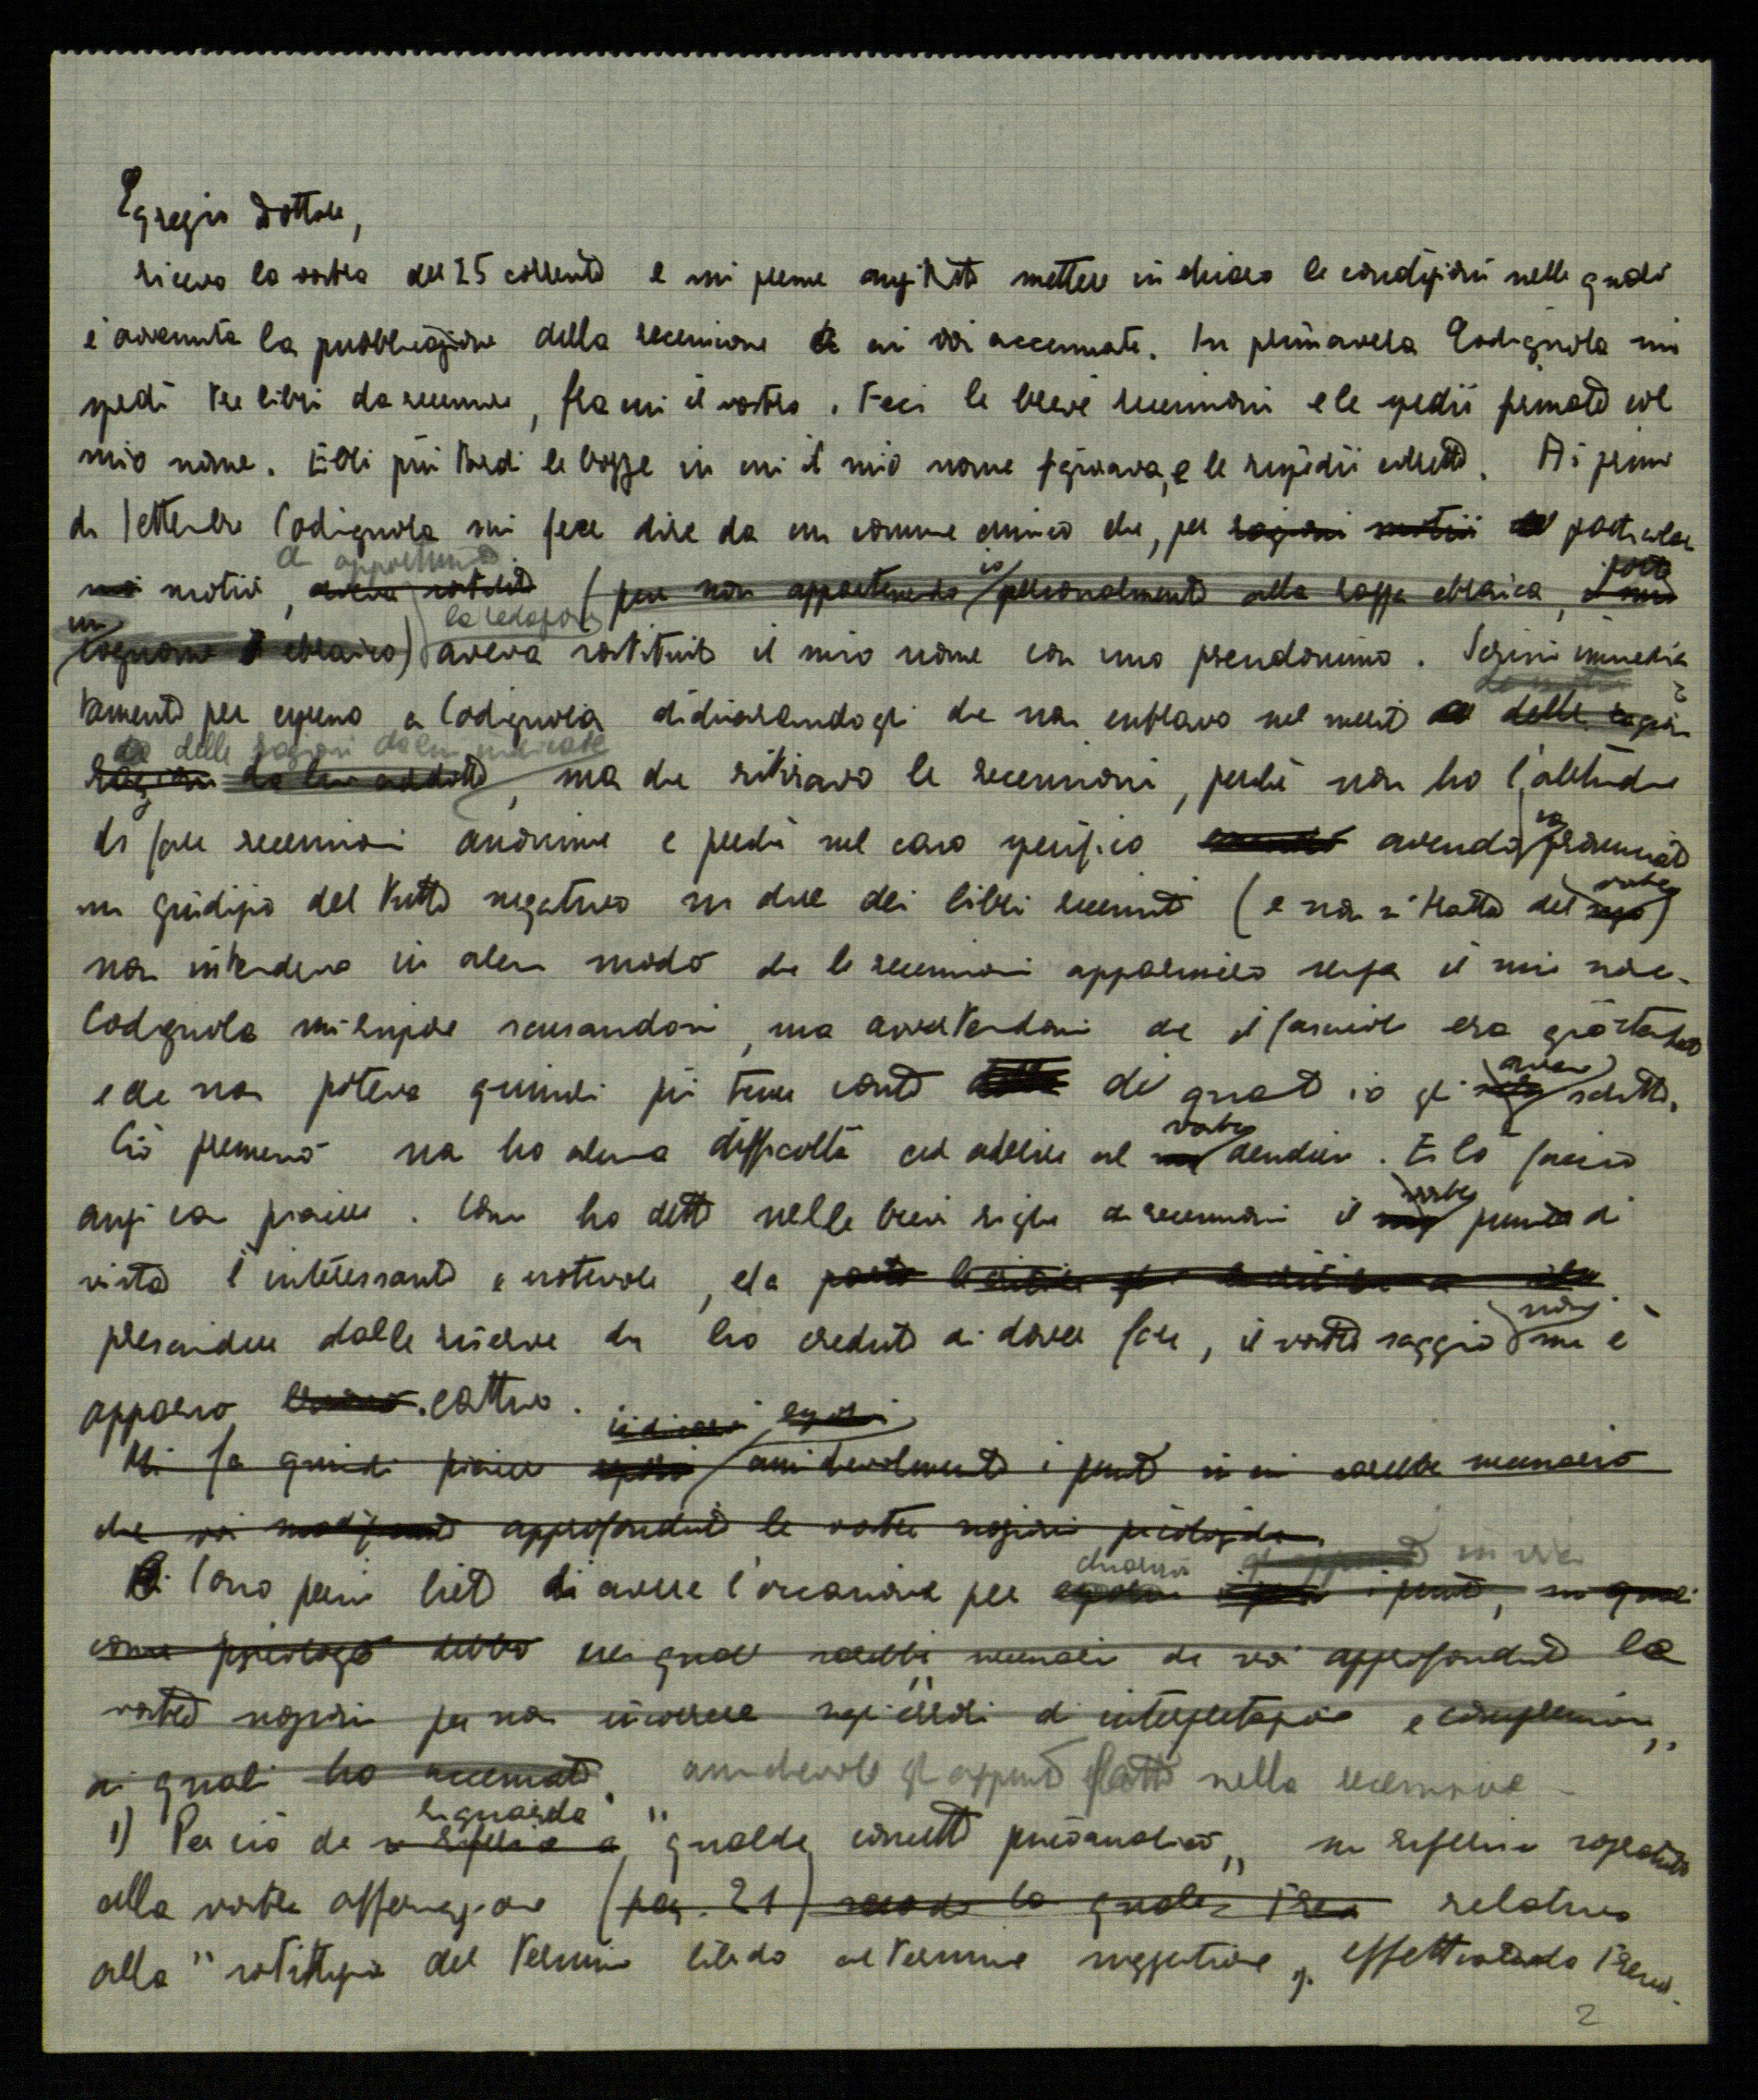 Egregio Dottore,
ricevo la vostra del 25 corrente e mi preme anzitutto mettere in chiaro le condizioni nelle quali
è avvenuta la pubblicazione della recensione a cui voi accennate. In primavera Codignola mi
spedì tre libri da recensire, fra cui il vostro. Feci le brevi recensioni e le spedii firmate col
mio nome. Ebbi più tardi le bozze in cui il mio nome figurava, e le rispedii corrette. Ai primi
di settembre Codignola mi fece dire da un comune amico che, per ragioni motivi particolari
motivi, (pur non appartenendo io personalmente alla razza ebraica,
cognome ebraico) la redazione aveva sostituito il mio nome con uno pseudonimo. Scrissi immedia
tamente per espresso a Codignola dichiarandogli che non entravo nel merito delle ragioni
delle ragioni da lui indicate ragioni da lui addotte, ma che ritiravo le recensioni, perché non ho l'abitudine
di fare recensioni anonime e perché nel caso specifico avendo io pronunciato
un giudizio del tutto negativo su due dei libri recensiti (e non si tratta del vostro)
non intendevo in alcun modo che le recensioni apparissero senza il mio nome.
Codignola mi rispose scusandosi, ma avvertendomi che il fascicolo era già stampato
e che non poteva quindi più tener conto di quanto io gli avevo scritto.
Ciò premesso non ho alcuna difficoltà ad aderire al vostro desiderio. E lo faccio
anzi con piacere. Come ho detto nelle brevi righe di recensione il vostro punto di
vista è interessante e notevole, ed a parte le
prescindere dalle riserve che ho creduto di dover fare, il vostro saggio non mi è
apparso cattivo.
indicarvi esporvi
Mi fa quindi piacere amichevolmente i punti in cui sarebbe necessario
che voi approfondiate le vostre nozioni psicologiche.
Sono però lieto di avere l'occasione per chiarirvi gli appunti i punti, su quali
come psicologo debbo nei quali sarebbe necessario che voi approfondiate le
vostre nozioni per non incorrere negli "errori di interpretazione e comprensione"
ai quali ho accennato. amichevole gli appunti fatti nella recensione
1) Per ciò che riguarda si riferisce a "qualche concetto psicoanalitico" mi riferivo soprattutto
alla vostra affermazione (pag. 21) secondo la quale relativa
alla "sostituzione del termine libido al termine suggestione" effettuata da Freud.
2